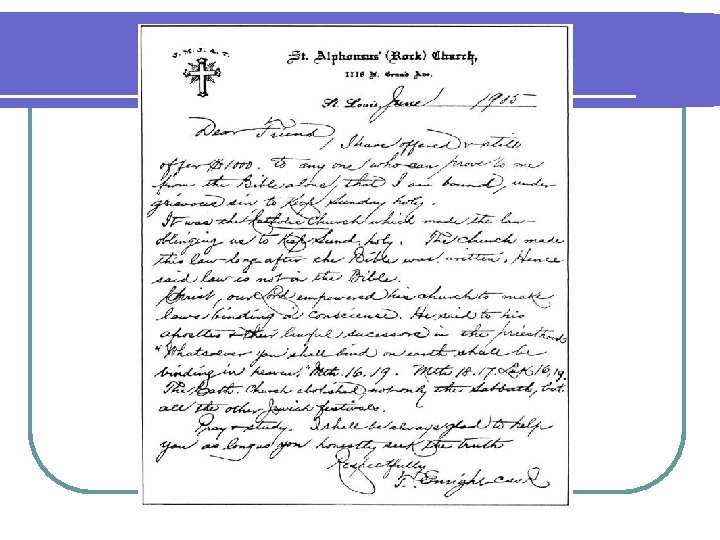 J. M. J. A. T.
St. Alphonsus' (Rock) Church,
1118 N. Grand Ave.
St. Louis, June 1905
Dear Friend,
I have offered & still
offer $1000. to any one who can prove to me
from the Bible alone, that I am bound, under
grievous sin to keep Sunday holy.
It was the Catholic Church which made the law
obliging us to keep Sund. holy. The church made
this law long after the Bible was written. Hence
said law is not in the Bible.
Christ, our Lord empowered his church to make
laws binding in conscience. He said to his
apostles & their lawful sucessors in the priesthood
"Whatsoever you shall bind on earth shall be
binding in heaven." Mth. 16. 19. Mth 18. 17. Lk 16, 19.
The Cath. Church abolished, not only the Sabbath, but
all the other Jewish festivals.
Pray & study. I shall be always glad to help
you as long as you honestly seek the truth
Respectfully
T. Enright CSSR